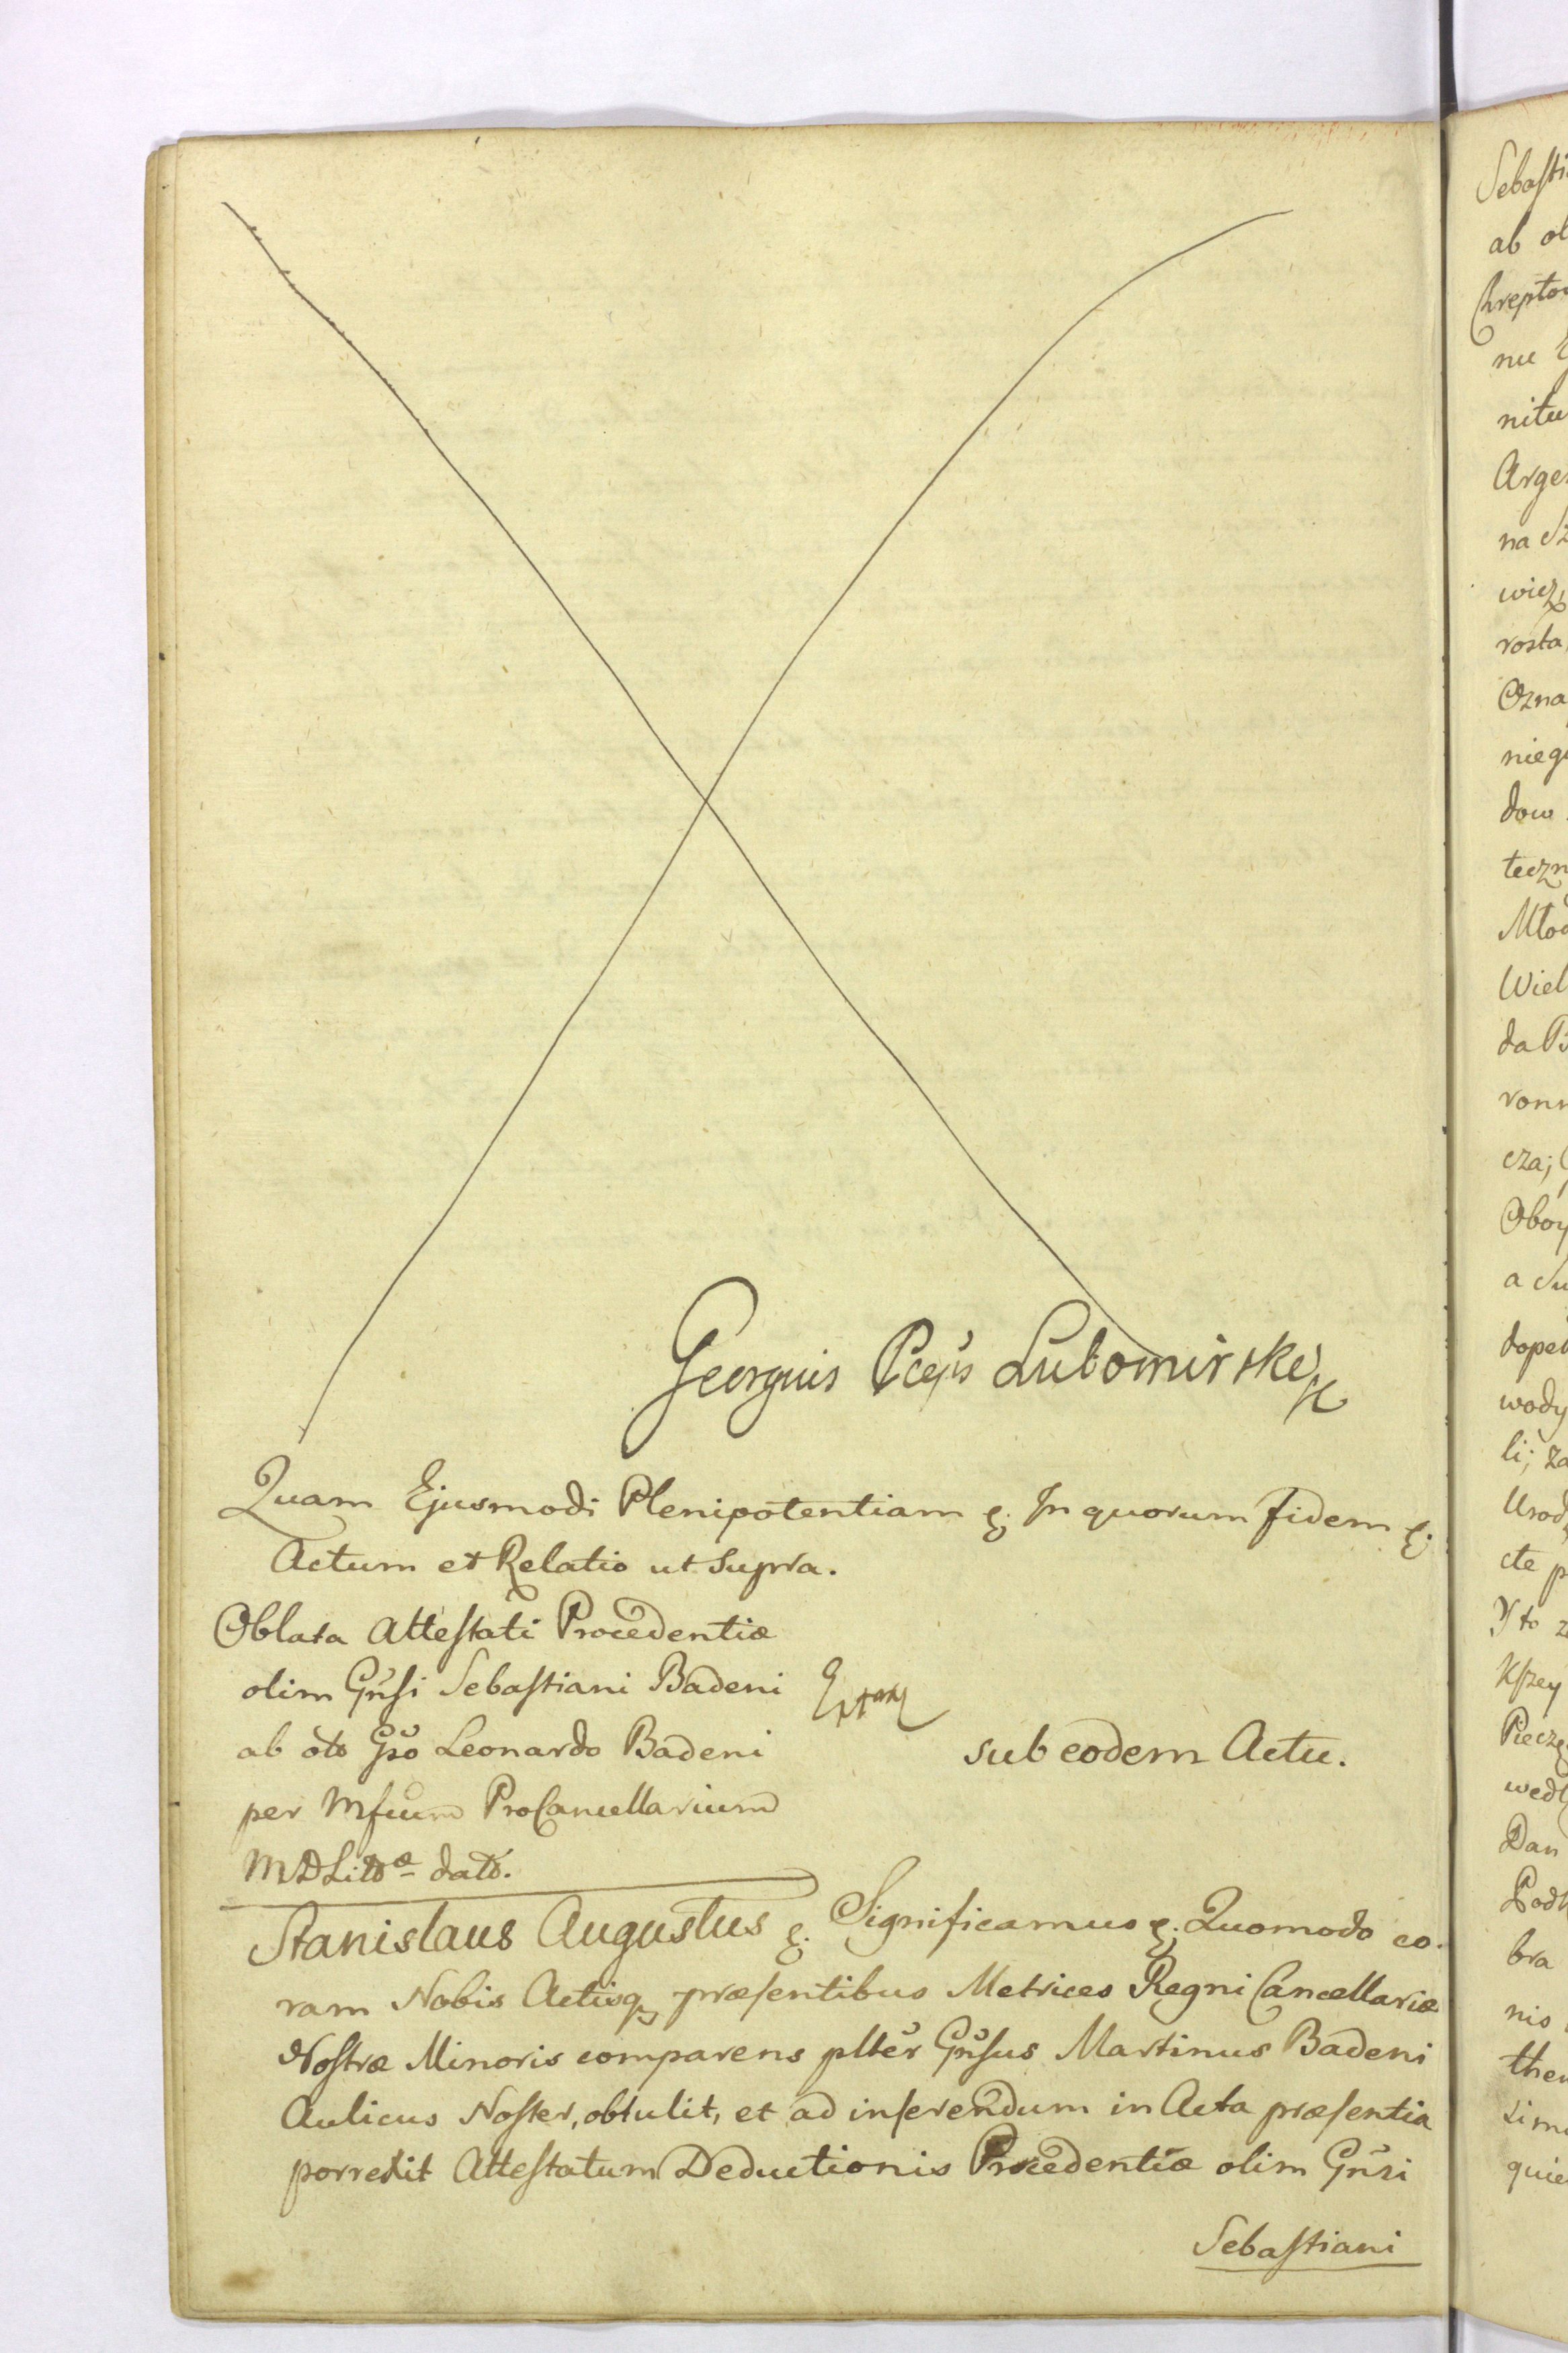 Georgius Pceps Lubomirski
Quam Ejusmodi Plenipotentiam &. In quorum fidem &.
Actum et Relatio ut supra.
Oblata Attestati Procedentiæ
olim Gnsi Sebastiani Badeni
ab oto Gso Leonardo Badeni
per Mfcum ProCancellarium
MDLittæ dato.
Extrad
sub eodem Actu.
Stanislaus Augustus &. Significamus &. Quomodo co-
ram Nobis Actisq præsentibus Metrices Regni Cancellariæ
Nostræ Minoris comparens plter Gnsus Martinus Badeni
Aulicus Noster, obtulit, et ad inserendum in Acta præsentia
porrexit Attestatum Deductionis Procedentiæ olim Gnsi
Sebastiani
Sebasti
ab ol
Chrepto
nitu
Arge
wicz
rosta
Ozna
nieg
dow
teczn
Młod
Wiel
da B
ronn
cza;
Oboy
dope
wody
li; za
Urod
cte p
Yto z
Krzey
Piecz
wedł
Dan
Podk
bra
nis
ther
sim
quie